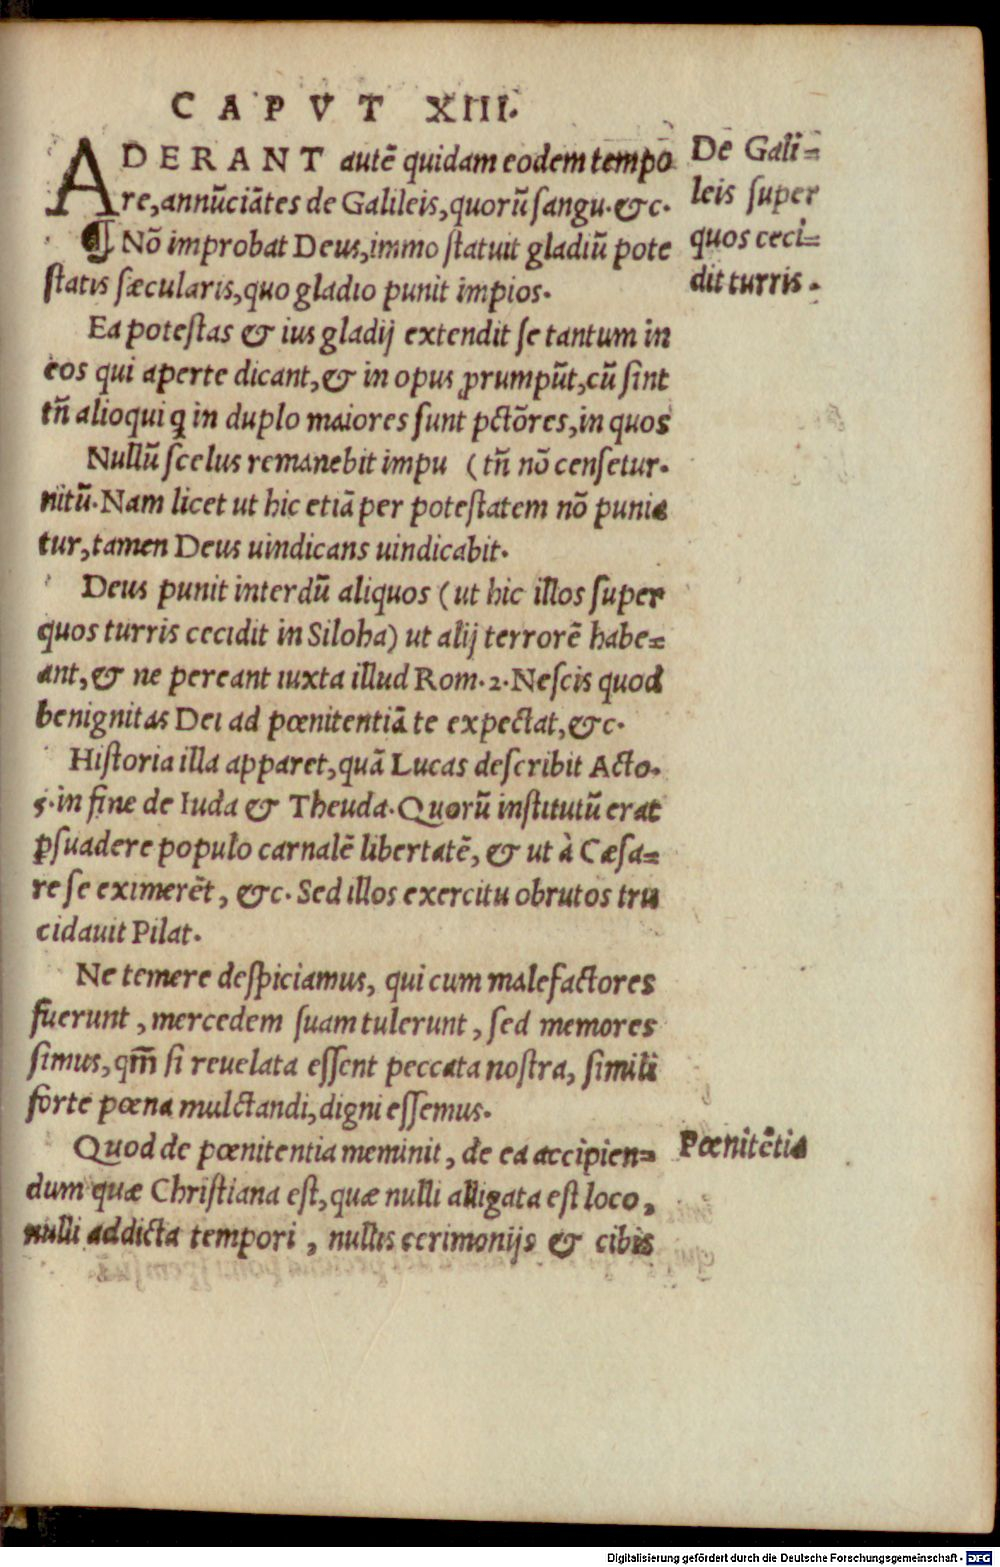 CAPVT XIII.
ADERANT autē quidam eodem tempo
re, annūciātes de Galileis, quorū sangu. &c.
¶ Nō improbat Deus, immo statuit gladiū pote
statis sæcularis, quo gladio punit impios.
Ea potestas & ius gladij extendit se tantum in
eos qui aperte dicant, & in opus ꝓrumpūt, cū sint
tn̄ alioqui ꝗ in duplo maiores sunt pctōres, in quos
Nullū scelus remanebit impu (tn̄ nō censetur.
nitū. Nam licet ut hic etiā per potestatem nō punia
tur, tamen Deus uindicans uindicabit.
Deus punit interdū aliquos (ut hic illos super
quos turris cecidit in Siloha) ut alij terrorē habe=
ant, & ne pereant iuxta illud Rom. 2. Nescis quod
benignitas Dei ad pœnitentiā te expectat, &c.
Historia illa apparet, quā Lucas describit Acto.
5. in fine de Iuda & Theuda. Quorū institutū erat
ꝑsuadere populo carnalē libertatē, & ut à Cæsa=
re se eximerēt, &c. Sed illos exercitu obrutos tru
cidauit Pilat.
Ne temere despiciamus, qui cum malefactores
fuerunt, mercedem suam tulerunt, sed memores
simus, qm̄ si reuelata essent peccata nostra, simili
forte pœna mulctandi, digni essemus.
Quod de pœnitentia meminit, de ea accipien=
dum quæ Christiana est, quæ nulli alligata est loco,
nulli addicta tempori, nullis cerimonijs & cibis
De Gali=
leis super
quos ceci=
dit turris.
Pœnitētia
Digitalisierung gefördert durch die Deutsche Forschungsgemeinschaft - DFG